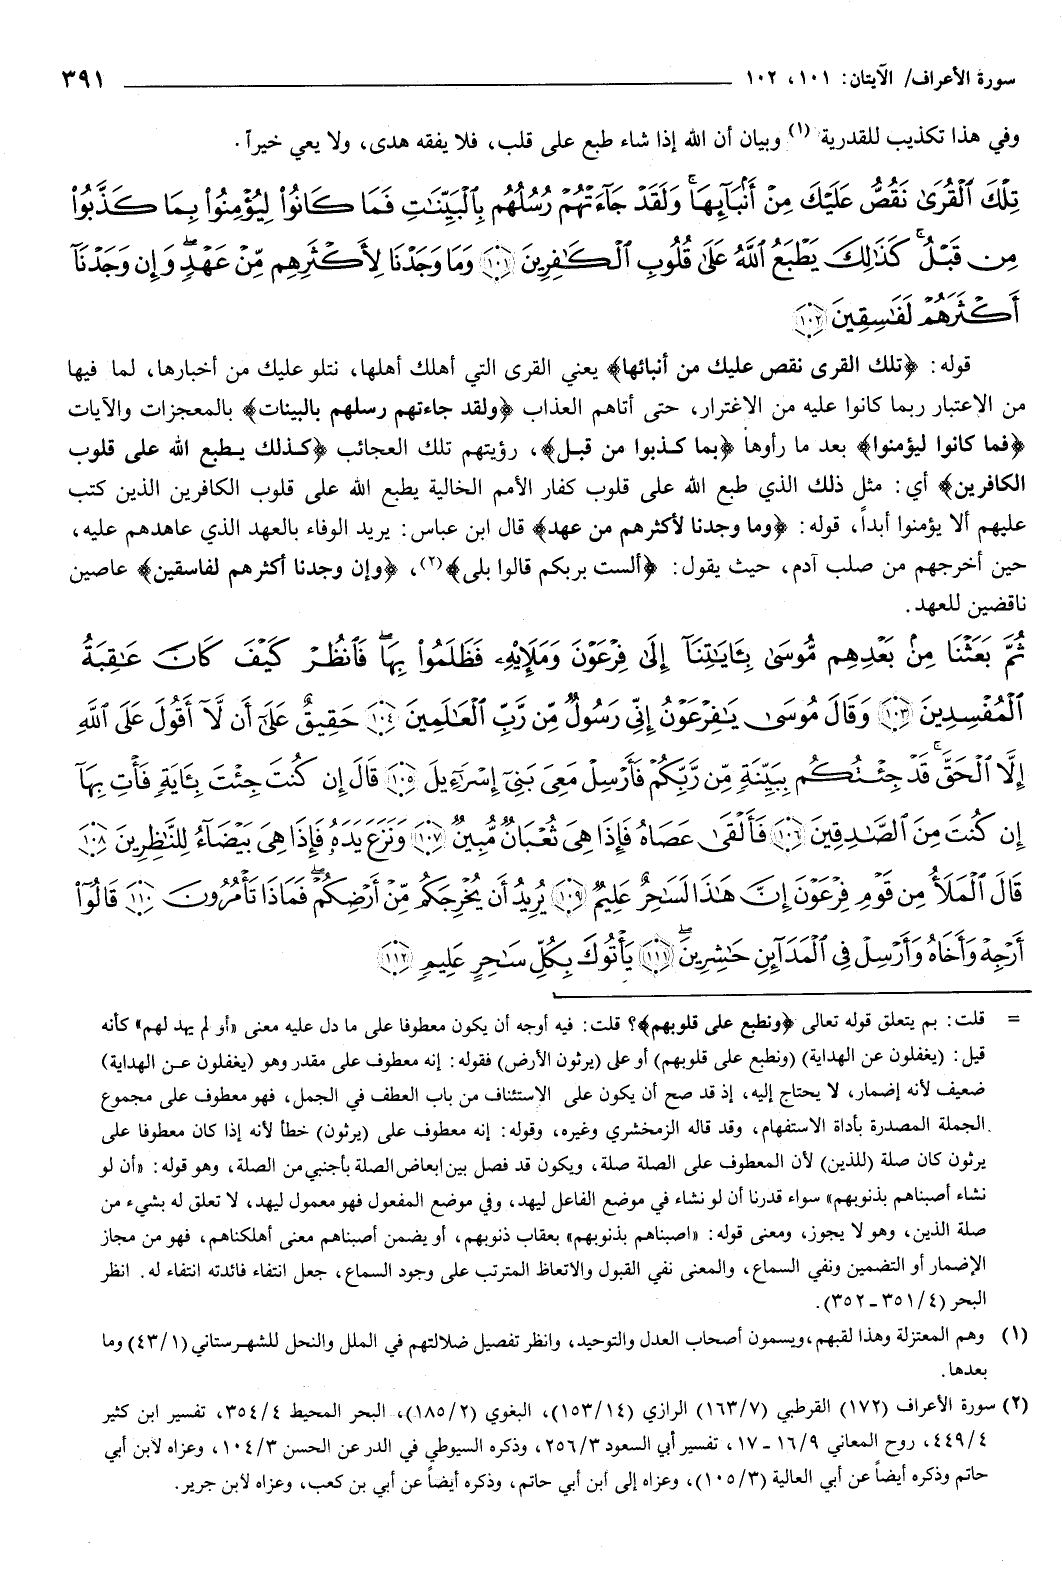 سورة الأعراف/ الآيتان: ١٠١، ١٠٢ ٣٩١
وفي هذا تكذيب للقدرية (١) وبيان أن الله إذا شاء طبع على قلب، فلا يفقه هدى، ولا يعي خيراً.
تِلْكَ ٱلْقُرَىٰ نَقُصُّ عَلَيْكَ مِنْ أَنۢبَآئِهَا ۚ وَلَقَدْ جَآءَتْهُمْ رُسُلُهُم بِٱلْبَيِّنَـٰتِ فَمَا كَانُوا۟ لِيُؤْمِنُوا۟ بِمَا كَذَّبُوا۟
مِن قَبْلُ ۚ كَذَٰلِكَ يَطْبَعُ ٱللَّهُ عَلَىٰ قُلُوبِ ٱلْكَـٰفِرِينَ ﴿١٠١﴾ وَمَا وَجَدْنَا لِأَكْثَرِهِم مِّنْ عَهْدٍ ۖ وَإِن وَجَدْنَآ
أَكْثَرَهُمْ لَفَـٰسِقِينَ ﴿١٠٢﴾
قوله: ﴿تلك القرى نقص عليك من أنبائها﴾ يعني القرى التي أهلك أهلها، نتلو عليك من أخبارها، لما فيها
من الاعتبار ربما كانوا عليه من الاغترار، حتى أتاهم العذاب ﴿ولقد جاءتهم رسلهم بالبينات﴾ بالمعجزات والآيات
﴿فما كانوا ليؤمنوا﴾ بعد ما رأوها ﴿بما كذبوا من قبل﴾، رؤيتهم تلك العجائب ﴿كذلك يطبع الله على قلوب
الكافرين﴾ أي: مثل ذلك الذي طبع الله على قلوب كفار الأمم الخالية يطبع الله على قلوب الكافرين الذين كتب
عليهم ألا يؤمنوا أبداً، قوله: ﴿وما وجدنا لأكثرهم من عهد﴾ قال ابن عباس: يريد الوفاء بالعهد الذي عاهدهم عليه،
حين أخرجهم من صلب آدم، حيث يقول: ﴿ألست بربكم قالوا بلى﴾(٢)، ﴿وإن وجدنا أكثرهم لفاسقين﴾ عاصين
ناقضين للعهد.
ثُمَّ بَعَثْنَا مِنۢ بَعْدِهِم مُّوسَىٰ بِـَٔايَـٰتِنَآ إِلَىٰ فِرْعَوْنَ وَمَلَإِي۟هِۦ فَظَلَمُوا۟ بِهَا ۖ فَٱنظُرْ كَيْفَ كَانَ عَـٰقِبَةُ
ٱلْمُفْسِدِينَ ﴿١٠٣﴾ وَقَالَ مُوسَىٰ يَـٰفِرْعَوْنُ إِنِّى رَسُولٌ مِّن رَّبِّ ٱلْعَـٰلَمِينَ ﴿١٠٤﴾ حَقِيقٌ عَلَىٰٓ أَن لَّآ أَقُولَ عَلَى ٱللَّهِ
إِلَّا ٱلْحَقَّ ۚ قَدْ جِئْتُكُم بِبَيِّنَةٍ مِّن رَّبِّكُمْ فَأَرْسِلْ مَعِىَ بَنِىٓ إِسْرَٰٓءِيلَ ﴿١٠٥﴾ قَالَ إِن كُنتَ جِئْتَ بِـَٔايَةٍ فَأْتِ بِهَآ
إِن كُنتَ مِنَ ٱلصَّـٰدِقِينَ ﴿١٠٦﴾ فَأَلْقَىٰ عَصَاهُ فَإِذَا هِىَ ثُعْبَانٌ مُّبِينٌ ﴿١٠٧﴾ وَنَزَعَ يَدَهُۥ فَإِذَا هِىَ بَيْضَآءُ لِلنَّـٰظِرِينَ ﴿١٠٨﴾
قَالَ ٱلْمَلَأُ مِن قَوْمِ فِرْعَوْنَ إِنَّ هَـٰذَا لَسَـٰحِرٌ عَلِيمٌ ﴿١٠٩﴾ يُرِيدُ أَن يُخْرِجَكُم مِّنْ أَرْضِكُمْ ۖ فَمَاذَا تَأْمُرُونَ ﴿١١٠﴾ قَالُوٓا۟
أَرْجِهْ وَأَخَاهُ وَأَرْسِلْ فِى ٱلْمَدَآئِنِ حَـٰشِرِينَ ﴿١١١﴾ يَأْتُوكَ بِكُلِّ سَـٰحِرٍ عَلِيمٍ ﴿١١٢﴾
= قلت: بم يتعلق قوله تعالى ﴿ونطبع على قلوبهم﴾؟ قلت: فيه أوجه أن يكون معطوفا على ما دل عليه معنى «أو لم يهد لهم» كأنه
قيل: (يغفلون عن الهداية) (ونطبع على قلوبهم) أو على (يرثون الأرض) فقوله: إنه معطوف على مقدر وهو (يغفلون عن الهداية)
ضعيف لأنه إضمار، لا يحتاج إليه، إذ قد صح أن يكون على الاستئناف من باب العطف في الجمل، فهو معطوف على مجموع
الجملة المصدرة بأداة الاستفهام، وقد قاله الزمخشري وغيره، وقوله: إنه معطوف على (يرثون) خطأ لأنه إذا كان معطوفا على
يرثون كان صلة (للذين) لأن المعطوف على الصلة صلة، ويكون قد فصل بين ابعاض الصلة بأجنبي من الصلة، وهو قوله: «أن لو
نشاء أصبناهم بذنوبهم» سواء قدرنا أن لو نشاء في موضع الفاعل ليهد، وفي موضع المفعول فهو معمول ليهد، لا تعلق له بشيء من
صلة الذين، وهو لا يجوز، ومعنى قوله: «اصبناهم بذنوبهم» بعقاب ذنوبهم، أو يضمن أصبناهم معنى أهلكناهم، فهو من مجاز
الإضمار أو التضمين ونفي السماع، والمعنى نفي القبول والاتعاظ المترتب على وجود السماع، جعل انتفاء فائدته انتفاء له. انظر
البحر (٣٥١/٤ - ٣٥٢).
(١) وهم المعتزلة وهذا لقبهم، ويسمون أصحاب العدل والتوحيد، وانظر تفصيل ضلالتهم في الملل والنحل للشهرستاني (٤٣/١) وما
بعدها.
(٢) سورة الأعراف (١٧٢) القرطبي (١٦٣/٧) الرازي (١٥٣/١٤)، البغوي (١٨٥/٢)، البحر المحيط ٣٥٤/٤، تفسير ابن كثير
٤٤٩/٤، روح المعاني ١٦/٩ - ١٧، تفسير أبي السعود ٢٥٦/٣، وذكره السيوطي في الدر عن الحسن ١٠٤/٣، وعزاه لابن أبي
حاتم وذكره أيضاً عن أبي العالية (١٠٥/٣)، وعزاه إلى ابن أبي حاتم، وذكره أيضاً عن أبي بن كعب، وعزاه لابن جرير.